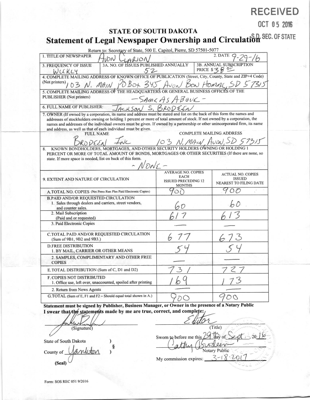 RECEIVED
OCT 05 2016
S.D. SEC. OF STATE
STATE OF SOUTH DAKOTA
Statement of Legal Newspaper Ownership and Circulation
Return to: Secretary of State, 500 E. Capitol, Pierre, SD 57501-5077
1. TITLE OF NEWSPAPER Avon Clarion
2. DATE 9-29-16
3. FREQUENCY OF ISSUE WEEKLY
3A. NO. OF ISSUES PUBLISHED ANNUALLY 52
3B. ANNUAL SUBSCRIPTION PRICE $
4. COMPLETE MAILING ADDRESS OF KNOWN OFFICE OF PUBLICATION (Street, City, County, State and ZIP+4 Code)
(Not printers) 103 N. MAIN PO BOX 345 AVON BON HOMME SD 57315
5. COMPLETE MAILING ADDRESS OF THE HEADQUARTERS OR GENERAL BUSINESS OFFICES OF THE
PUBLISHER (Not printers)
- SAME AS ABOVE -
6. FULL NAME OF PUBLISHER: JACKSON S. BRODEEN
7. OWNER (If owned by a corporation, its name and address must be stated and
FULL NAME
COMPLETE MAILING ADDRESS
BRODEEN INC. 103 N. MAIN, AVON SD 57315
8. KNOWN BONDHOLDERS, MORTGAGES, AND OTHER SECURITY HOLDERS OWNING OR HOLDING 1
PERCENT OR MORE OF TOTAL AMOUNT OF BONDS, MORTGAGES OR OTHER SECURITIES (If there are none, so
state. If more space is needed, list on back of this form.
- NONE -
9. EXTENT AND NATURE OF CIRCULATION
AVERAGE NO. COPIES EACH ISSUED PRECEDING 12 MONTHS
ACTUAL NO. COPIES ISSUED NEAREST TO FILING DATE
A. TOTAL NO. COPIES 900 900
B. PAID AND/OR REQUESTED CIRCULATION
1. Sales through dealers and carriers, street vendors,
and counter sales. 60 60
2. Mail Subscription
(Paid and or requested) 617 613
3. Paid Electronic Copies
C. TOTAL PAID AND/OR REQUESTED CIRCULATION
(Sum of 9B1, 9B2 and 9B3.) 677 673
D. FREE DISTRIBUTION
1. BY MAIL, CARRIER OR OTHER MEANS 54 54
2. SAMPLES, COMPLIMENTARY AND OTHER FREE
COPIES
E. TOTAL DISTRIBUTION (Sum of C, D1 and D2) 731 727
F. COPIES NOT DISTRIBUTED
1. Office use, left over, unaccounted, spoiled after printing 169 173
2. Return from News Agents
G. TOTAL (Sum of E, F1 and F2 – Should equal total shown in A.) 900 900
Statement must be signed by Publisher, Business Manager, or Owner in the presence of a Notary Public
I swear that the statements made by me are true, correct, and complete:
Editor
(Signature) (Title)
State of South Dakota )
Sworn to before me this 29th day of Sept., 2016
County of Yankton )
Notary Public
(Seal)
My commission expires: 3-18-2017
Form: SOS REC 051 9/2014